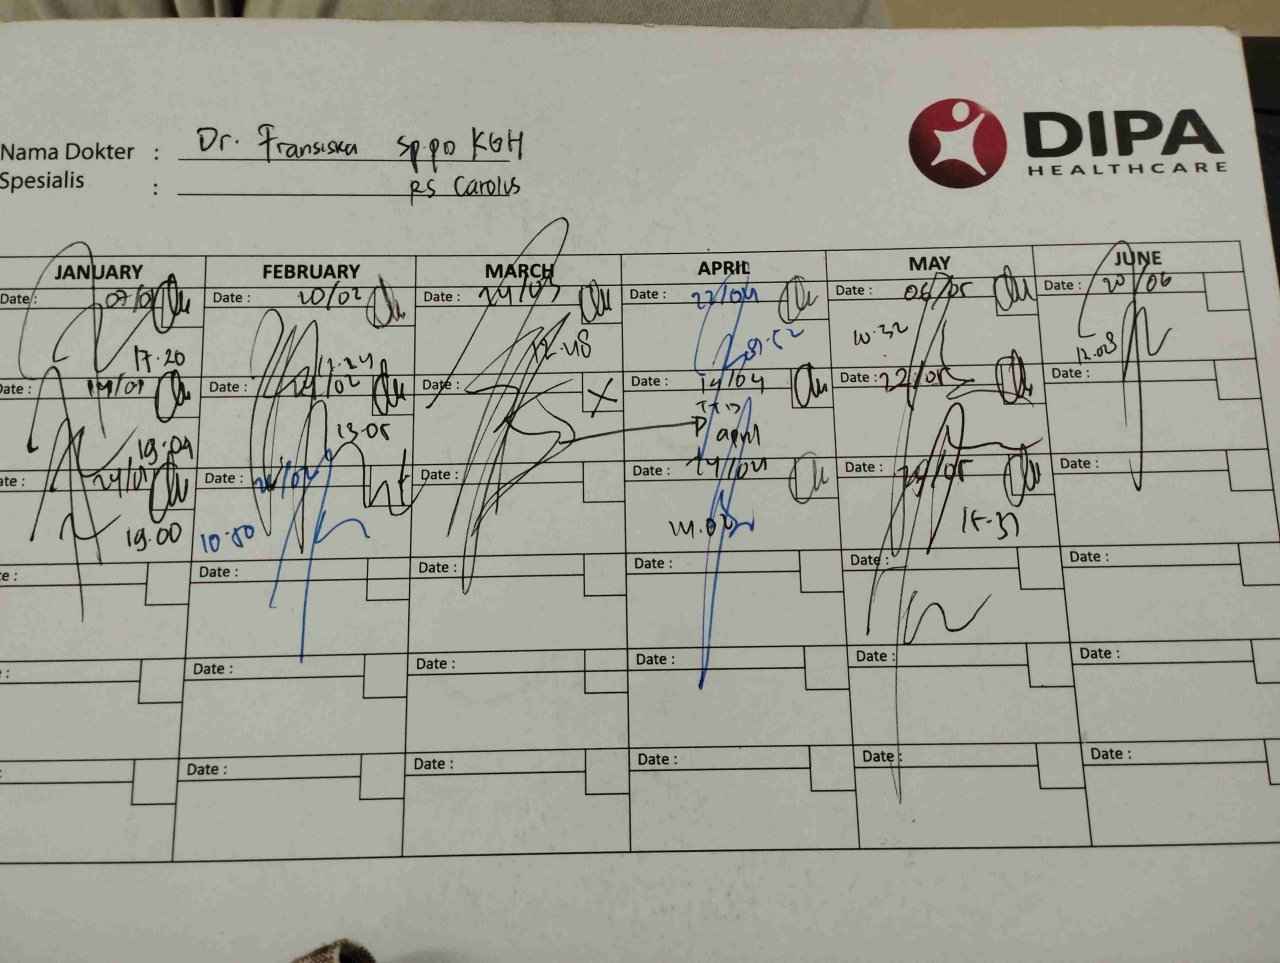 DIPA
HEALTHCARE
Nama Dokter : Dr. Fransiska Sp.PD KGH
Spesialis : RS Carolus
JANUARY FEBRUARY MARCH APRIL MAY JUNE
Date : 07/01 Date : 20/02 Date : 24/03 Date : 22/04 Date : 06/05 Date : 20/06
17.20 12.48 10.32 12.08
Date : Date : 24/02 Date : X Date : 14/04 Date : 22/05 Date :
19.09 13.05 TTD april
Date : 24/01 Date : Date : Date : 24/04 Date : 29/05 Date :
19.00 10.50 14.02 15.37
Date : Date : Date : Date : Date : Date :
Date : Date : Date : Date : Date :
Date : Date : Date : Date : Date :